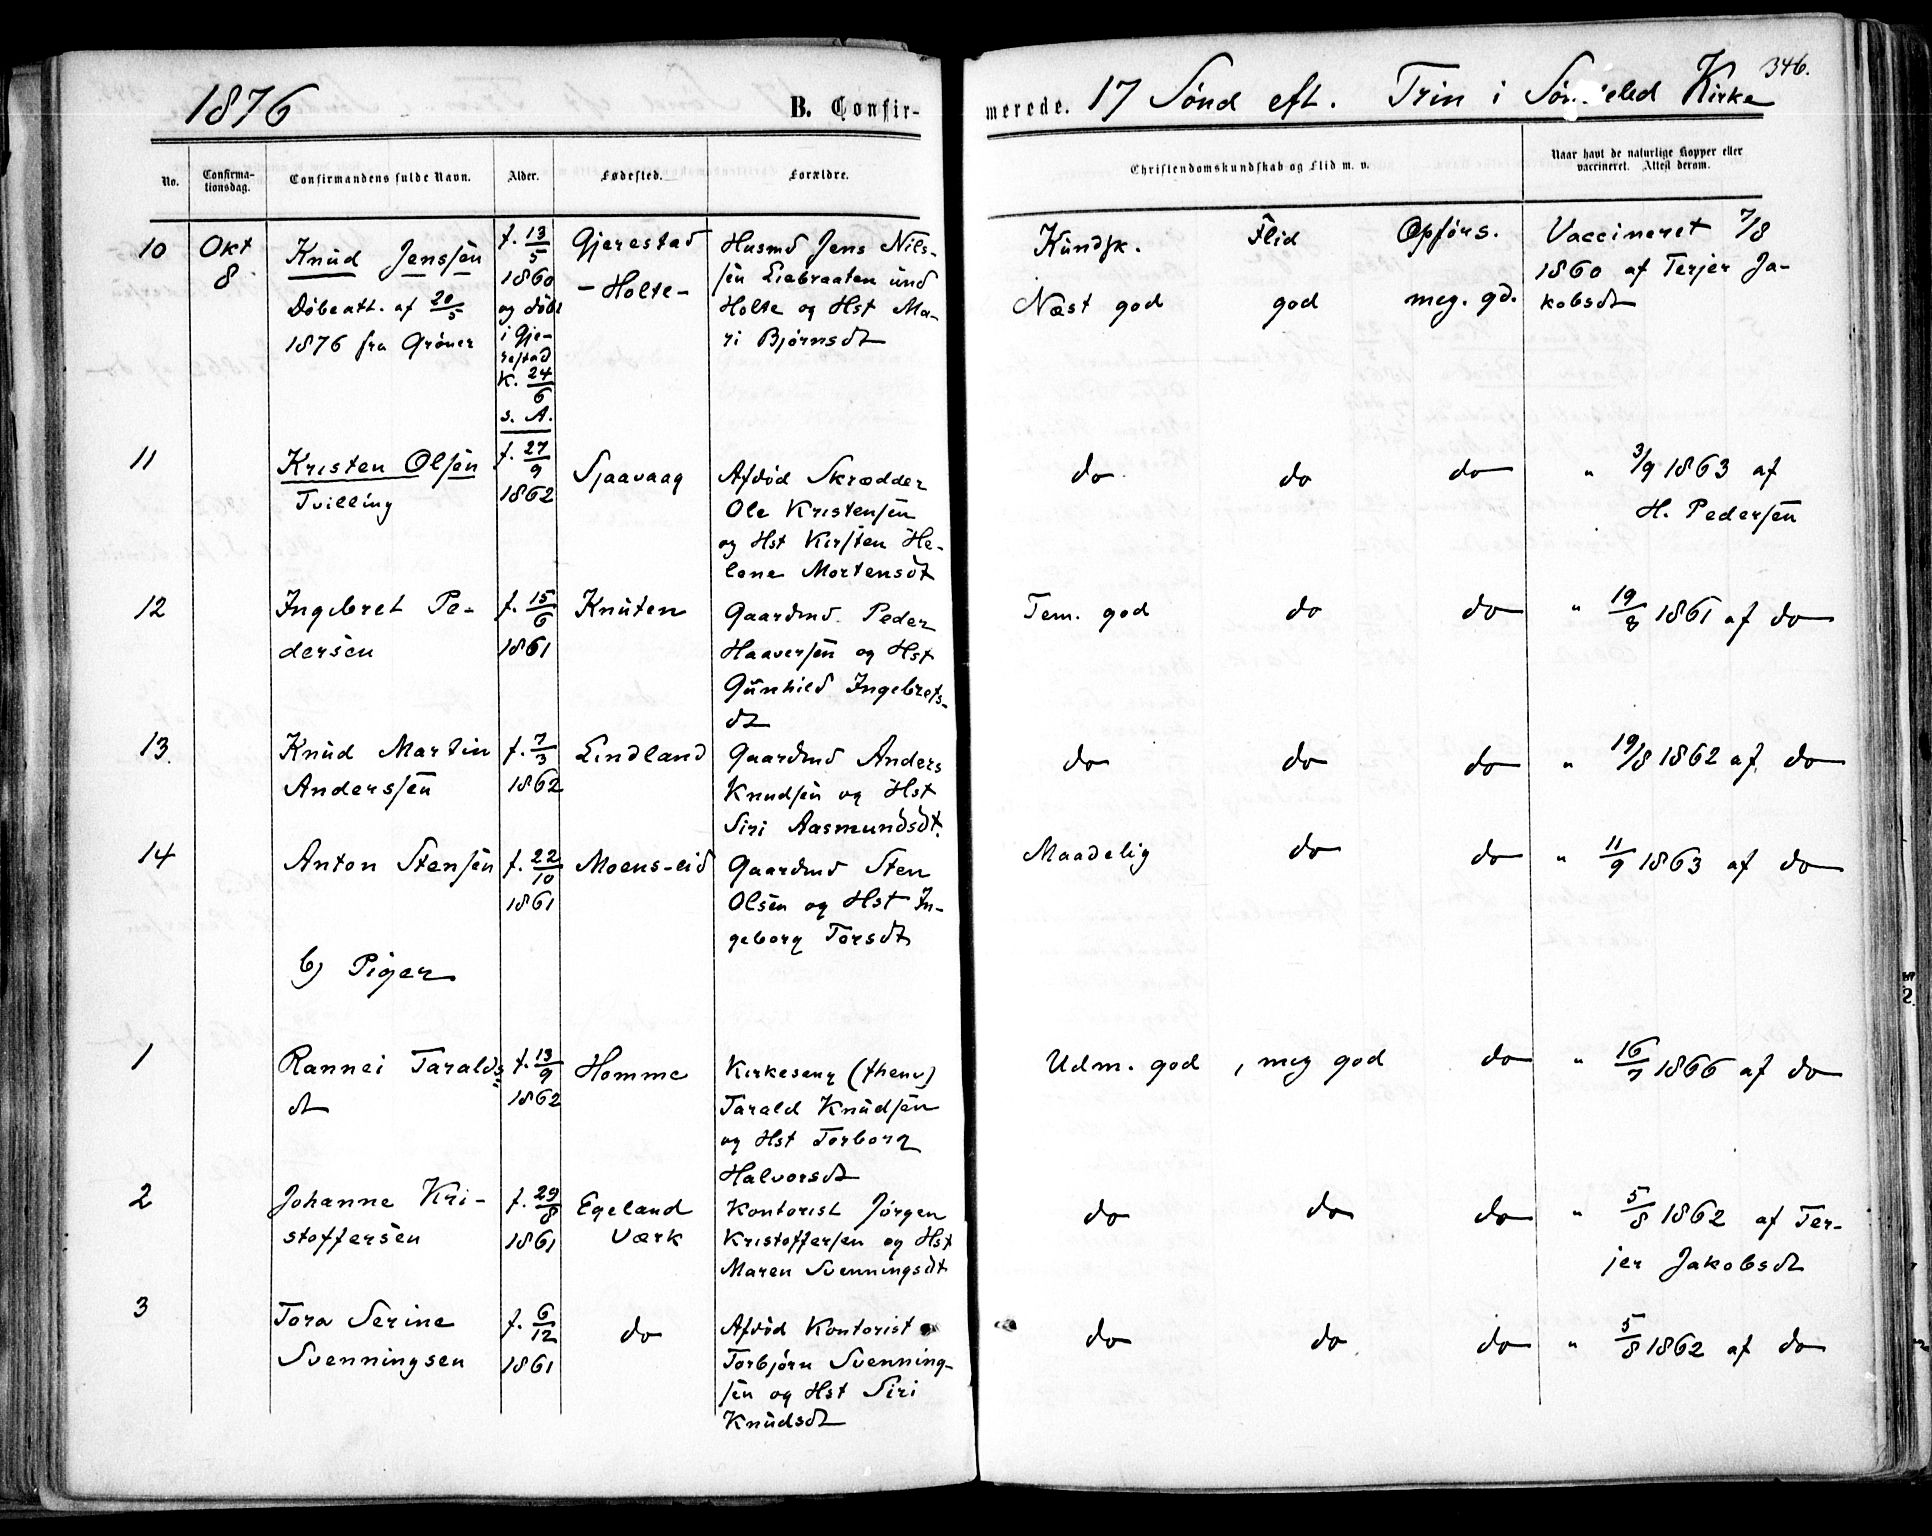 1876 B. Confir-
merede. 17 Sönd eft. Trin i Kirke 346.
No. Confirma-tionsdag. Confirmandens fulde Navn. Alder. Fødested. Forældre. Christendomskundskab og Flid m. v. Naar havt de naturlige Kopper eller vaccineret. Attest derom.
10 Okt Knud Jenssen f. 13/5 Gjerestad Husmd Jens Nils- Kundsk. Flid Opförs. Vaccineret 7/8
8 Döbeatt. af 20/5 1860 - Holte - sen Liebraaten und Næst god god meg. gd. 1860 af Terjer Ja-
1876 fra Gröner og döbt Holte og Hst Ma- kobsdt
i Gje- ri Björnsdt
restad
K. 24/6
s. A.
11 Kristen Olsen f. 27/9 Sjaavaag Afdöd Skrædder do do do " 3/9 1863 af
Tvilling 1862 Ole Kristensen H. Pedersen
og Hst Kirsten He-
lene Mortensdt
12 Ingebret Pe- f. 15/6 Knuten Gaardmd. Peder Tem. god do do " 19/8 1861 af do
dersen 1861 Haaversen og Hst
Gunhild Ingebrets-
dt
13. Knud Martin f. 7/3 Lindland Gaardmd Anders do do do " 19/8 1862 af do
Anderssen 1862 Knudsen og Hst
Siri Aasmundsdt.
14 Anton Stensen f. 22/10 Moens-eid Gaardmd Sten Maadelig do do " 11/9 1863 af do
1861 Olsen og Hst In-
geborg Torsdt
b) Piger
1 Rannei Taralds f. 13/9 Homme Kirkesang (fhenv) Udm. god , meg god do " 16/7 1866 af do
dt 1862 Tarald Knudsen
og Hst Torborg
Halvorsdt
2 Johanne Kri- f. 29/8 Egeland Kontorist Jörgen do do do " 5/8 1862 af Ter-
stoffersen 1861 Værk Kristoffersen og Hst jer Jakobsdt
Maren Svenningsdt
3 Tora Serine f. 6/12 do Afdöd Kontorist do do do " 5/8 1862 af do
Svenningsen 1861 Torbjörn Svenning-
sen og Hst Siri
Knudsdt